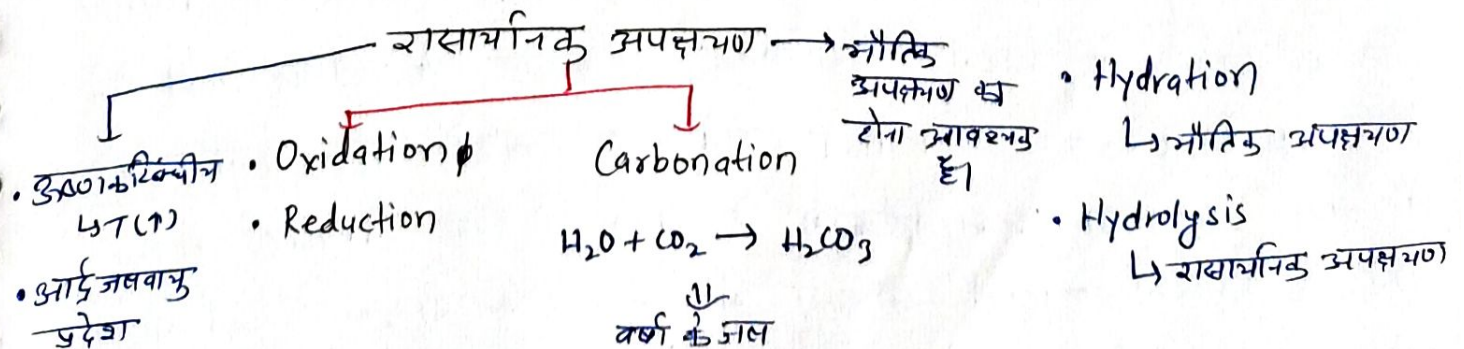 रासायनिक अपक्षयण → भौतिक
अपक्षयण का
होना आवश्यक
है।
• उष्णकटिबंधीय
↳ T (↑)
• आर्द्र जलवायु
प्रदेश
• Oxidation
• Reduction
Carbonation
H₂O + CO₂ → H₂CO₃
⇓
वर्षा के जल
• Hydration
↳ भौतिक अपक्षयण
• Hydrolysis
↳ रासायनिक अपक्षयण